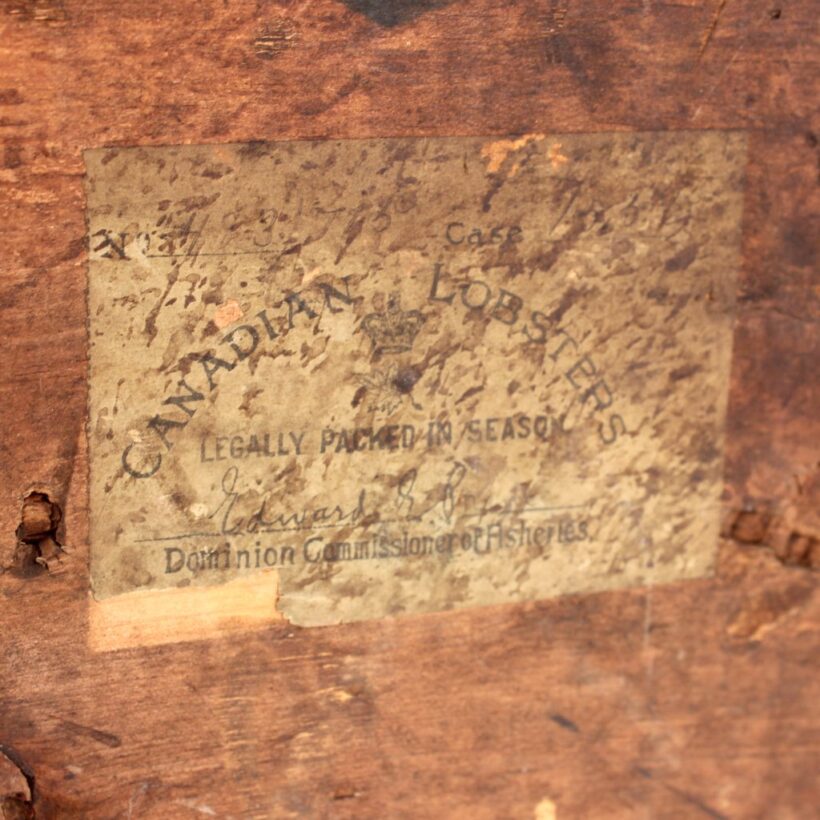 No.
Case
CANADIAN LOBSTERS
LEGALLY PACKED IN SEASON
Edward E. P
Dominion Commissioner of Fisheries.